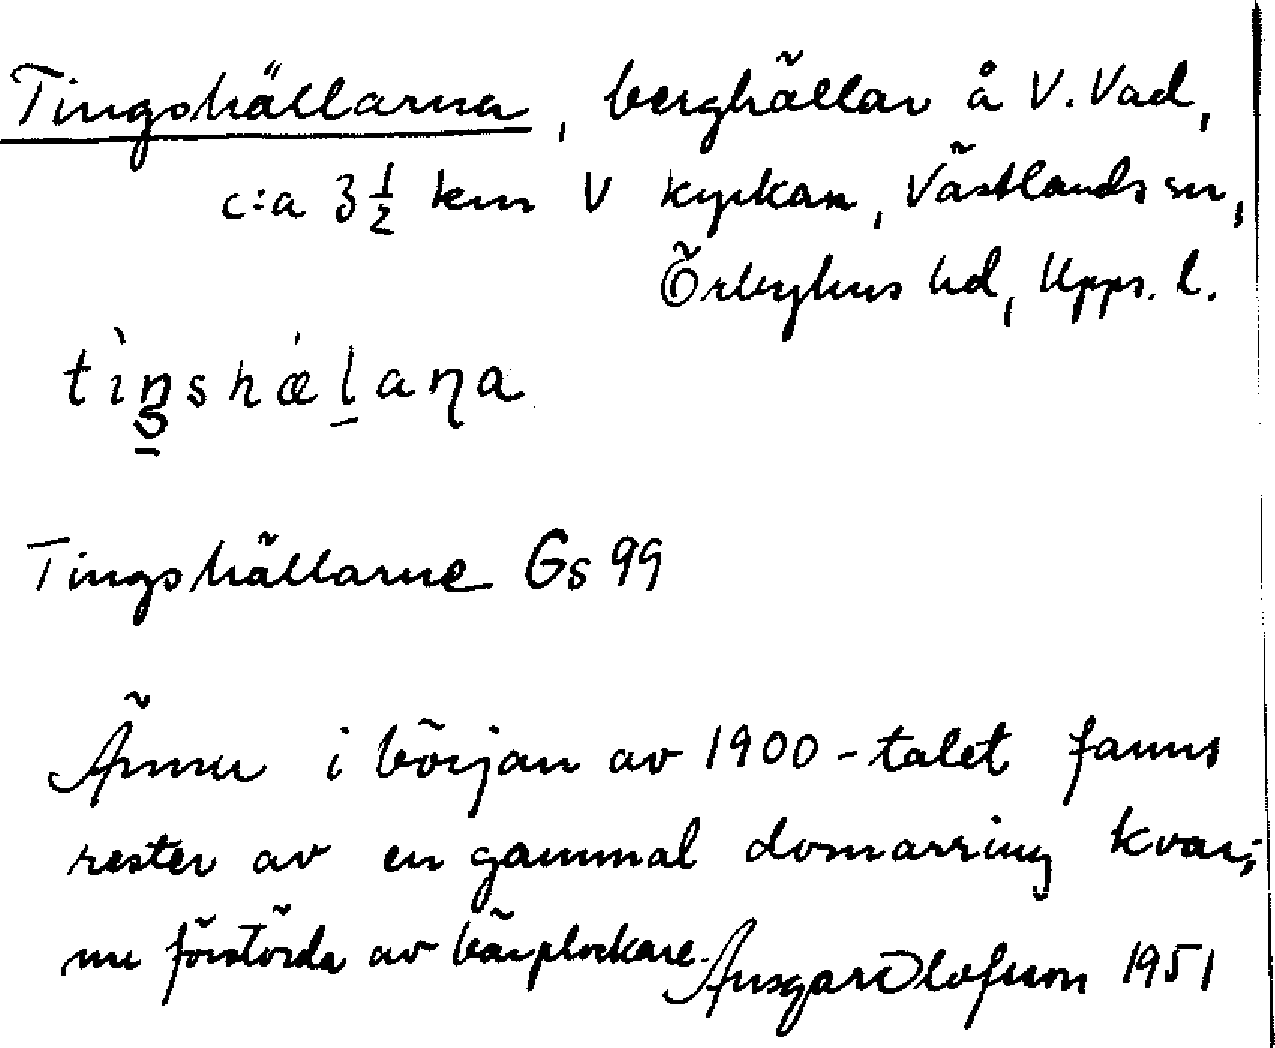 Tingshällarna, berghällar å V. Vad,
c:a 3½ km V kyrkan, Västlands sn,
Örbyhus hd, Upps. l.
tìŋshæ̀laɳa
Tingshällarne Gs 99
Ännu i början av 1900-talet fanns
rester av en gammal domarring kvar;
nu förstörda av bärplockare.
Ansgar Olofsson 1951